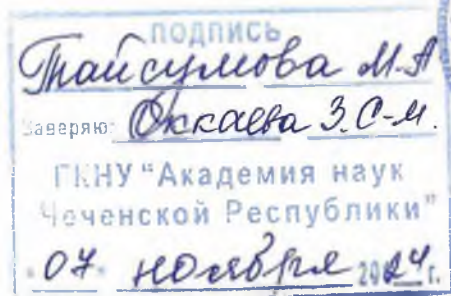 ПОДПИСЬ
Тайсумова М.А
Заверяю: Оккаева З.С-М.
ГКНУ "Академия наук
Чеченской Республики"
"07" ноября 2024 г.